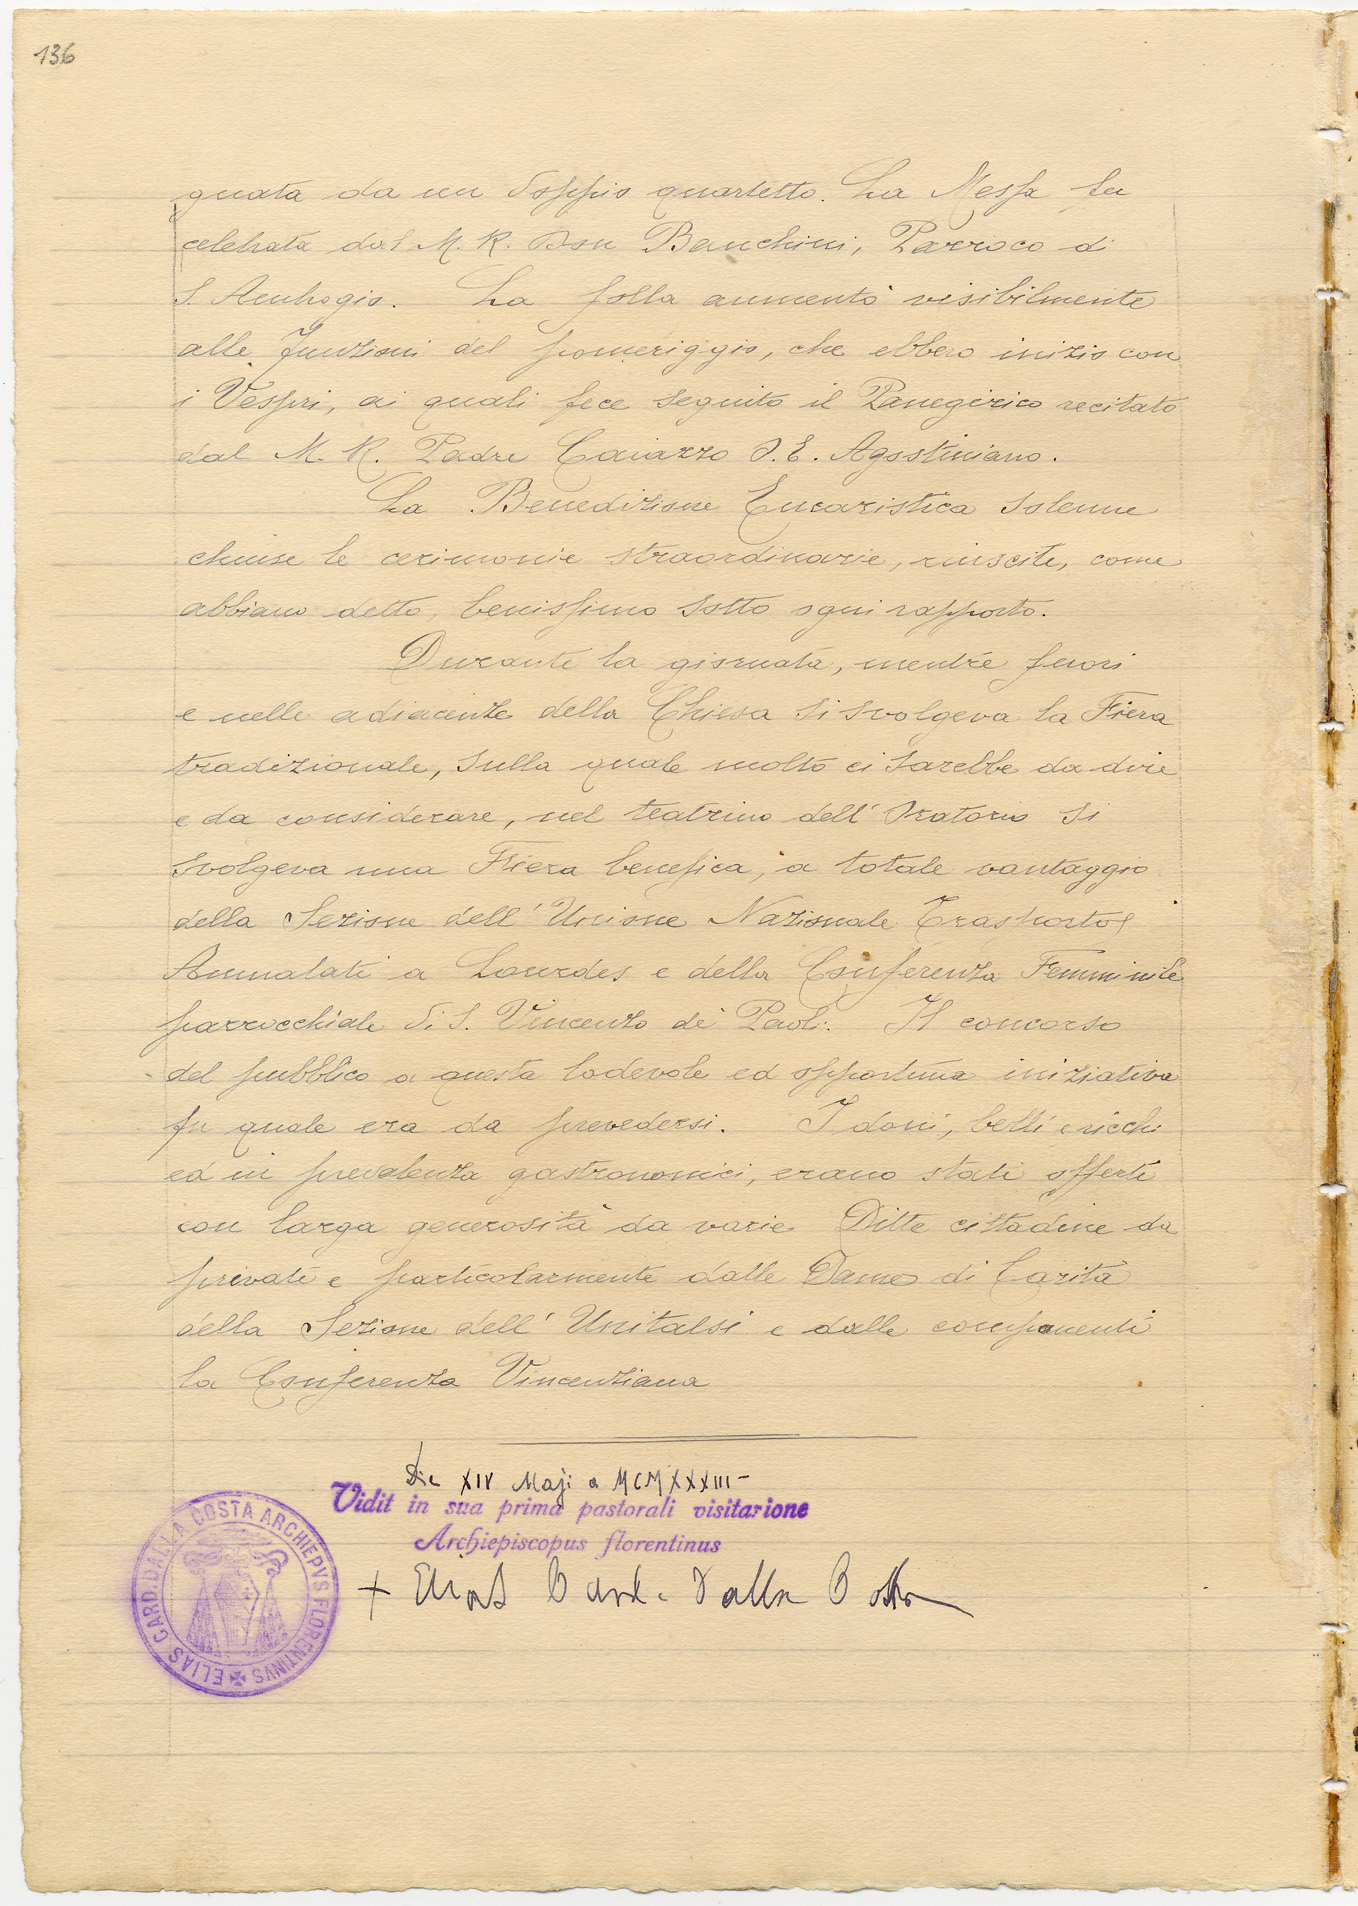 136
gnata da un doppio quartetto. La Messa fu
celebrata dal M. R. Don Banchini, Parroco di
S. Ambrogio. La folla aumentò visibilmente
alle funzioni del pomeriggio, che ebbero inizio con
i Vespri, ai quali fece seguito il Panegirico recitato
dal M. R. Padre Caiazzo O.E. Agostiniano.
La Benedizione Eucaristica solenne
chiuse le cerimonie straordinarie, riuscite, come
abbiamo detto, benissimo sotto ogni rapporto.
Durante la giornata, mentre fuori
e nelle adiacenze della Chiesa si svolgeva la Fiera
tradizionale, sulla quale molto ci sarebbe da dire
e da considerare, nel teatrino dell'Oratorio si
svolgeva una Fiera benefica, a totale vantaggio
della Sezione dell'Unione Nazionale Trasporto
Ammalati a Lourdes e della Conferenza Femminile
parrocchiale di S. Vincenzo de' Paoli. Il concorso
del pubblico a questa lodevole ed opportuna iniziativa
fu quale era da prevedersi. I doni, belli e ricchi
ed in prevalenza gastronomici, erano stati offerti
con larga generosità da varie Ditte cittadine da
privati e particolarmente dalle Dame di Carità
della Sezione dell'Unitalsi e dalle componenti
la Conferenza Vincenziana
Die XIV Maji a MCMXXXIII -
Vidit in sua prima pastorali visitazione
Archiepiscopus florentinus
+ Elias Card. Dalla Costa
ELIAS CARD. DALLA COSTA ARCHIEPVS FLORENTINVS